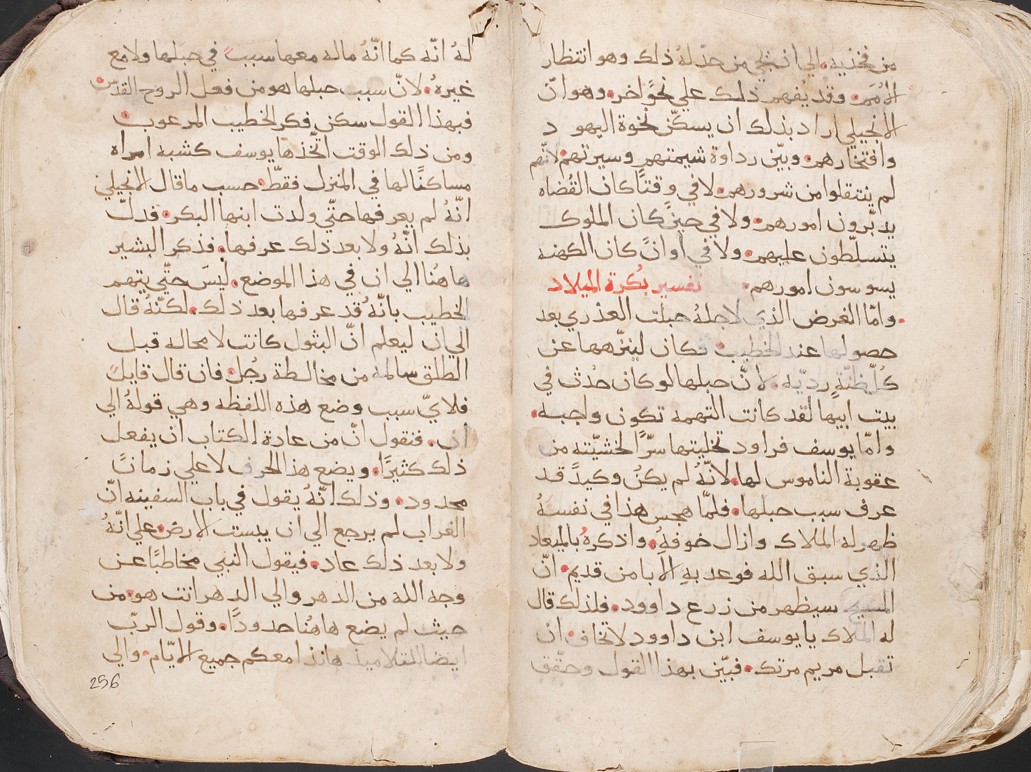 من فخذيه. الي ان يجي من حدّ له ذلك وهو انتظار
الامم. وقد يفهم ذلك علي نحوٍ اخر. وهو انّ
الانجيلي اراد بذلك ان يسكّن نخوة اليهود
وافتخارهم. وبيّن رداوة شيمتهم وسيرتهم لانهم
لم ينتقلوا من شرورهم. لا في وقتٍ كان القضاه
يدبّرون امورهم. ولا في حينٍ كان الملوك
يتسلّطون عليهم. ولا في اوانٍ كان الكهنه
يسوسون امورهم. تفسير بُكرة الميلاد
وامّا الغرض الذي لاجله حبلت العذري بعد
حصولها عند الخطيب فكان لينزّهها عن
كُلّ ظنّةٍ رديّه. لانّ حبلها لو كان حدث في
بيت ابيها لقد كانت التهمه تكون واجبه.
وامّا يوسف فراود تخليتها سرًّا لخشيّته من
عقوبة الناموس لها. لانّهُ لم يكنُ وكيدًا قد
عرف سبب حبلها. فلمّا هجس هذا في نفسهُ
ظهر له الملاك وازال خوفهِ. واذكرهُ بالميعاد
الذي سبق الله فوعد به الابا من قديم. انّ
المسيح سيظهر من زرع داوود. فلذلك قال
له الملاك يا يوسف ابن داوود لا تخاف ان
تقبل مريم مرتك. فبيّن بهذا القول وحقّق
لهُ انّه كما انّهُ ماله معها سببٌ في حبلها ولا مع
غيره. لانّ سبب حبلها هو من فعل الروح القدس
فبهذا القول سكن فكر الخطيب المرعوب
ومن ذلك الوقت اتّخذها يوسف كشبه امراه
مساكنًا لها في المنزل فقط. حسب ما قال الانجيلي
انّهُ لم يعرفها حتّي ولدت ابنها البكر. فدلّ
بذلك انّهُ ولا بعد ذلك عرفها. فذكر البشير
هاهُنا الي ان في هذا الموضع. ليس حتّي يتهم
الخطيب بانّهُ قد عرفها بعد ذلك. لكنّهُ قال
الي ان ليعلم انّ البتول كانت لا محاله قبل
الطلق سالمه من مخالطة رجُل. فان قال قايل
فلايّ سبب وضع هذه اللفظه وهي قولهُ الي
ان. فنقول انّ من عادة الكتاب ان يفعل
ذلك كثيرًا. ويضع هذا الحرف لا علي زمانٍ
محدود. وذلك انّهُ يقول في باب السفينه انّ
الغراب لم يرجع الي ان يبست الارض. علي انّهُ
ولا بعد ذلك عاد. فيقول النبي مخاطبًا عن
وجه الله من الدهر والي الدهر انت هو. من
حيث لم يضع هاهُنا حدودًا. وقول الربّ
ايضا للتلاميذ هانذا معكم جميع الايّام. والي
256